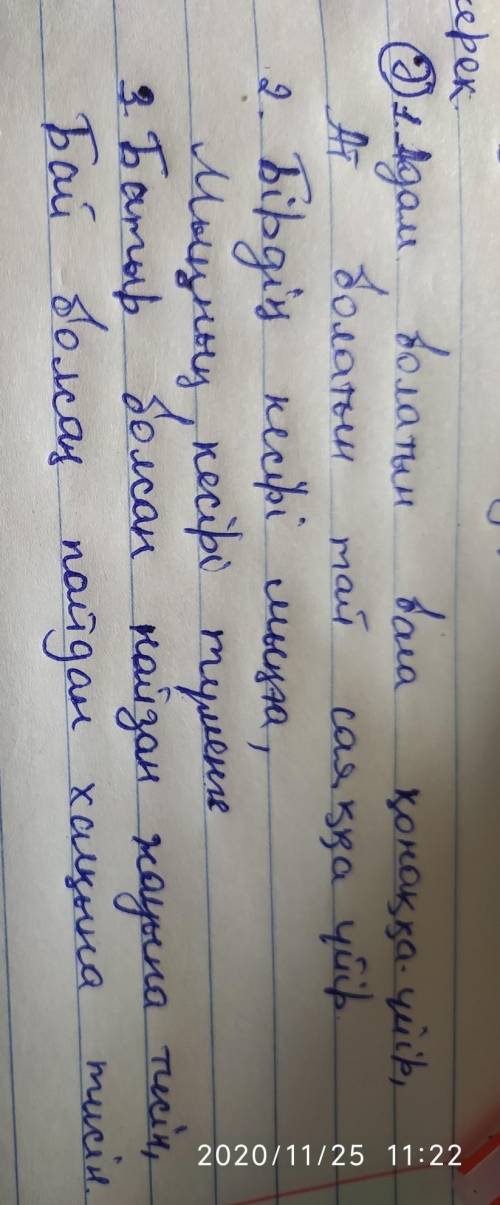 керек.
② 1. Адам болатын бала қонаққа үйір,
Ат болатын тай саяққа үйір.
2. Бірдің кесірі мыңға,
Мыңның кесірі түменге
3. Батыр болсаң найзаң жауыңа тисін,
Бай болсаң пайдаң халқыңа тисін.
2020/11/25 11:22